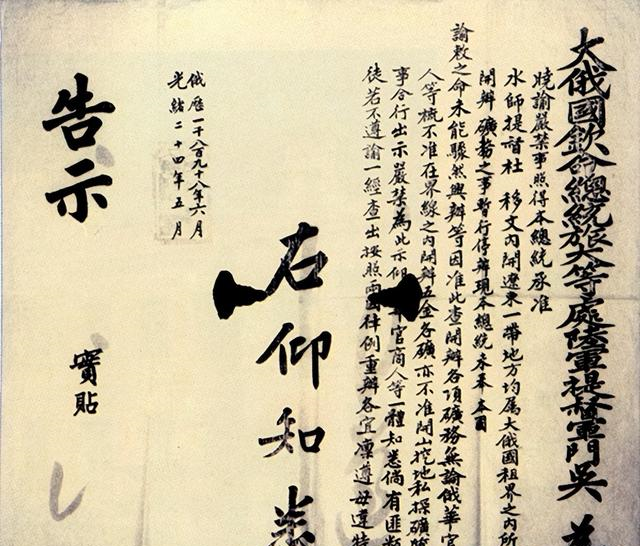 大俄國欽命總統旅大等處陸軍提督軍門吳
曉諭嚴禁事照得本總統承准
水師提督杜 移文內開遼東一帶地方均属大俄國租界之內所
開辦礦務之事暫行停辦現本總統未奉本國
諭敕之命未能驟然興辦等因准此查開辦各項礦務無論俄華官
人等概不准在界線之內開辦五金各礦亦不准開山挖地私採礦
事合行出示嚴禁為此示仰華官商人等一體知悉倘有匪
徒若不遵諭一經查出按照兩國律例重辦各宜凜遵毋違特
右仰知悉
俄曆一千八百九十八年六月
光緒二十四年五月
告示
實貼